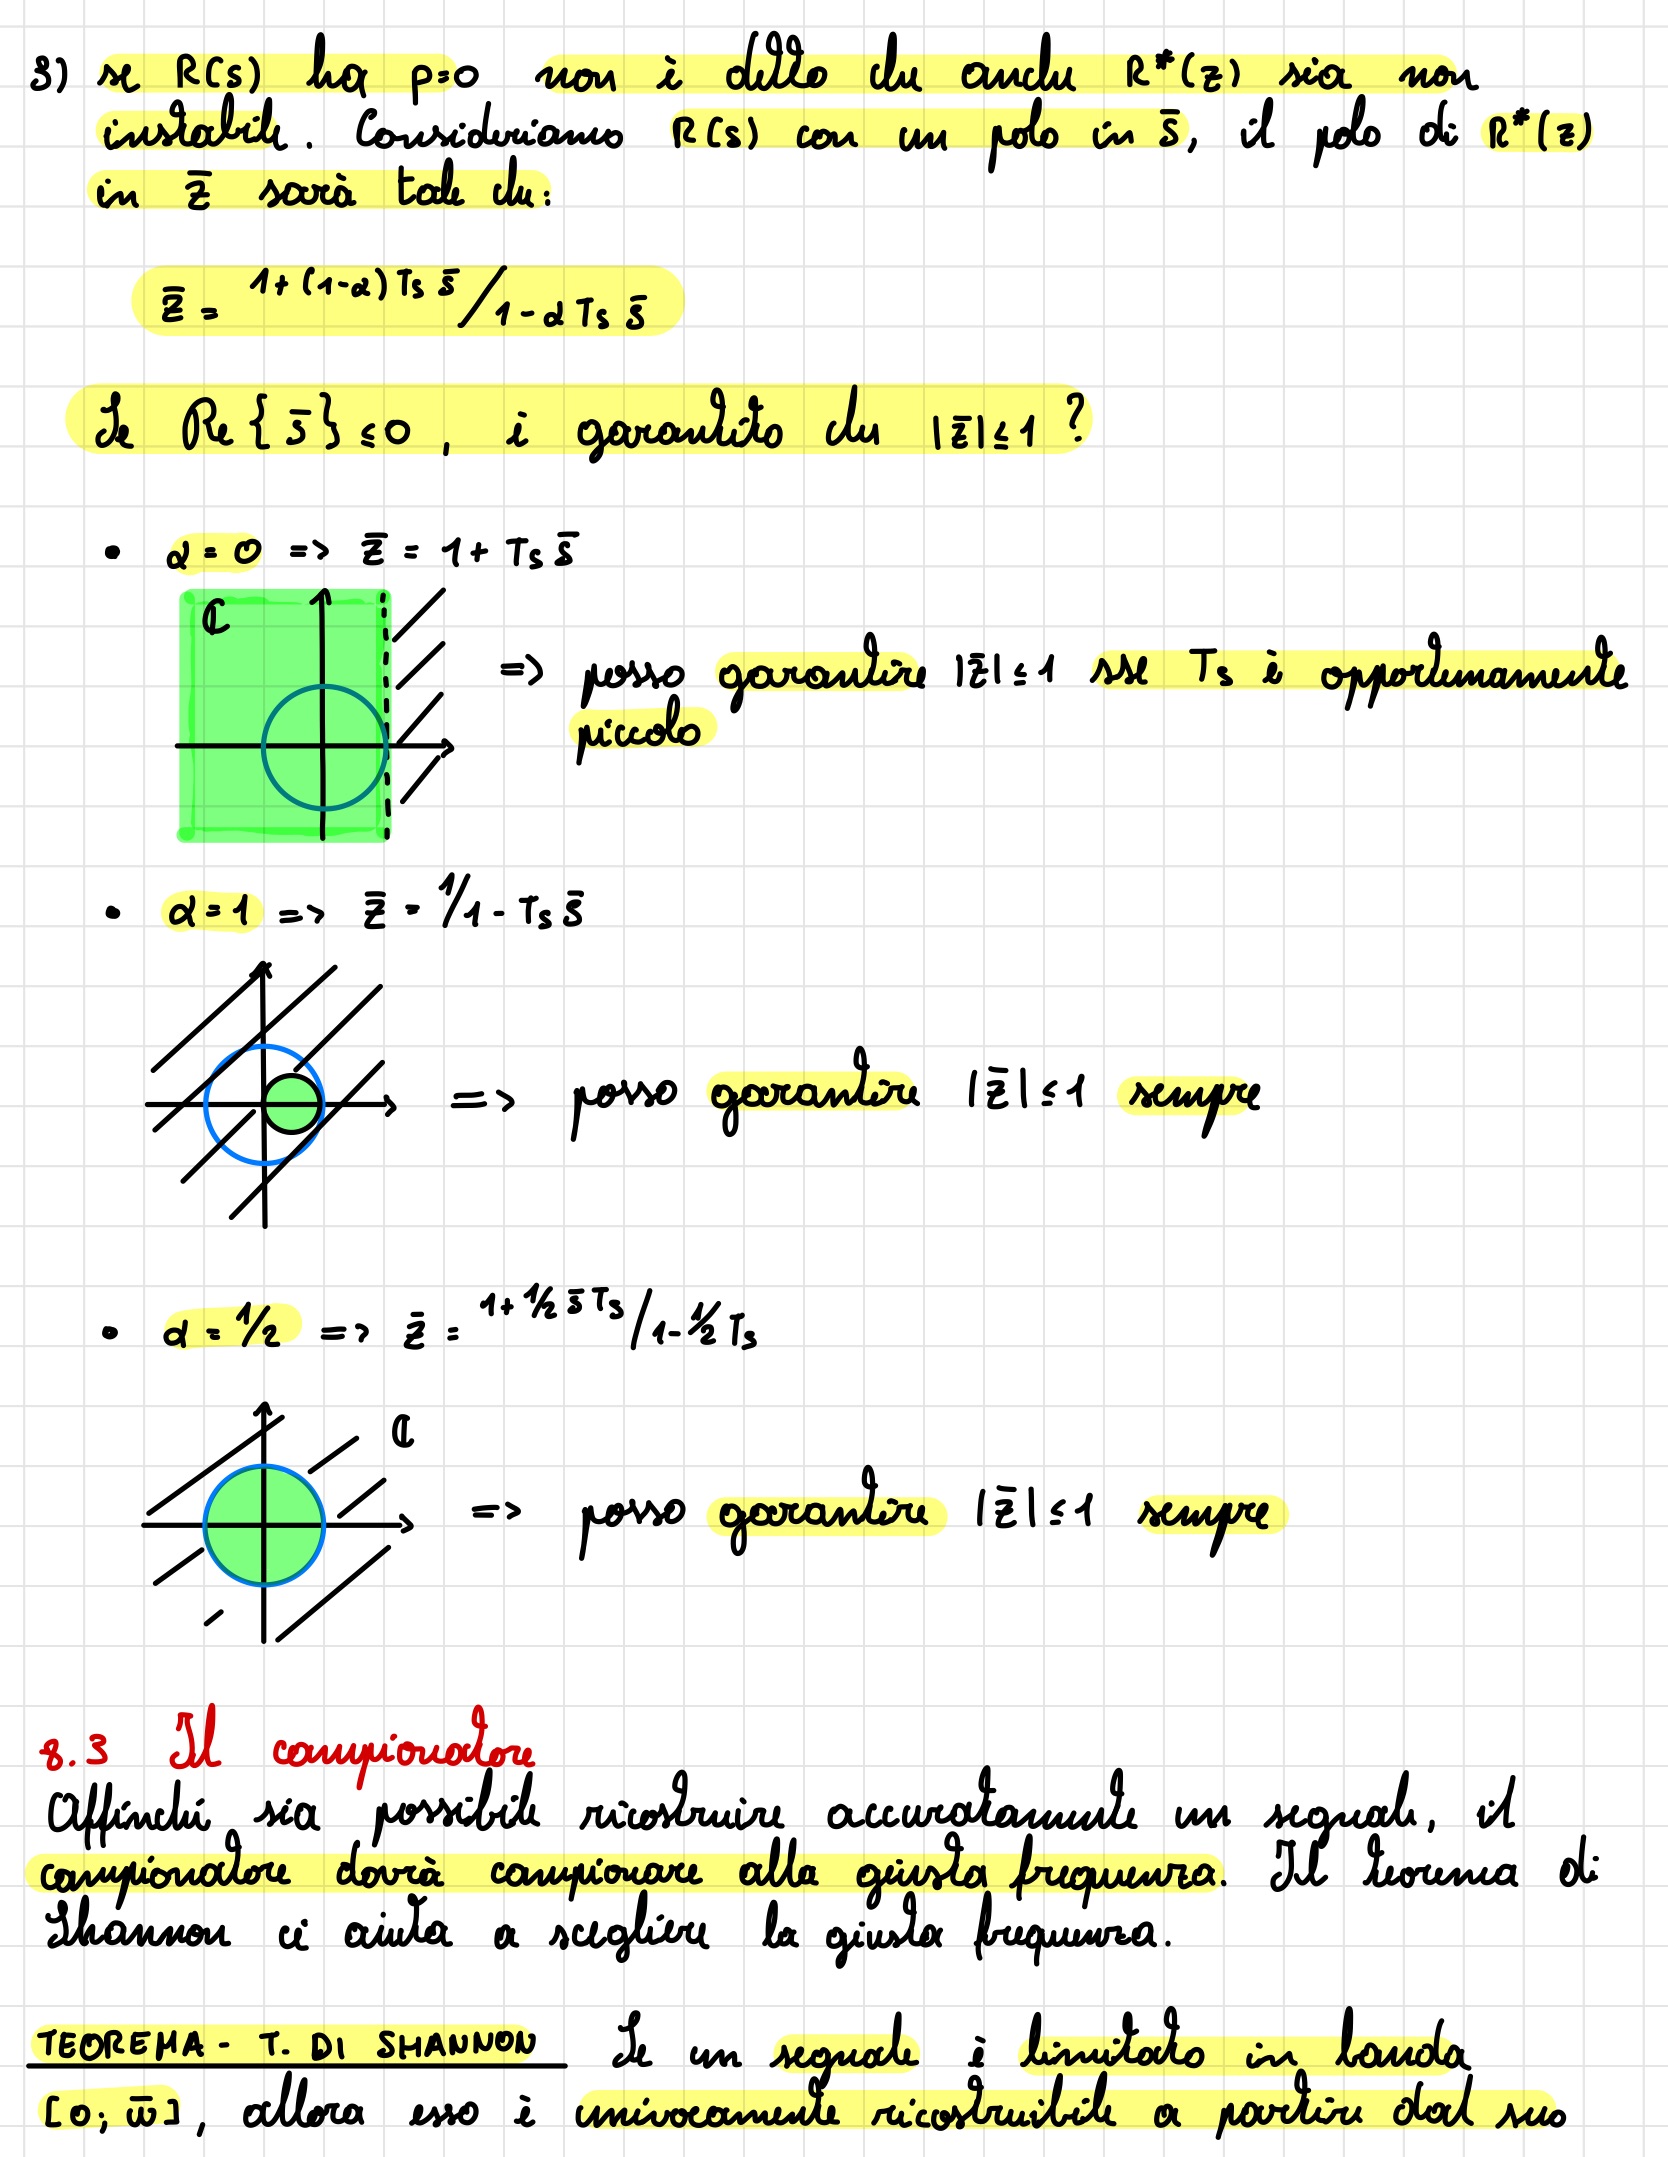 3) se R(s) ha p=0 non è detto che anche R*(z) sia non
instabile. Consideriamo R(s) con un polo in s̅, il polo di R*(z)
in z̅ sarà tale che:
z̅ = 1+(1-α)Ts s̅ / 1-α Ts s̅
Se Re{s̅}≤0, è garantito che |z̅|≤1?
• α=0 => z̅ = 1+Ts s̅
ℂ
=> posso garantire |z̅|≤1 sse Ts è opportunamente
piccolo
• α=1 => z̅ = 1/1-Ts s̅
=> posso garantire |z̅|≤1 sempre
• α=1/2 => z̅ = 1+1/2 s̅ Ts/1-1/2 Ts
ℂ
=> posso garantire |z̅|≤1 sempre
8.3 Il campionatore
Affinché sia possibile ricostruire accuratamente un segnale, il
campionatore dovrà campionare alla giusta frequenza. Il teorema di
Shannon ci aiuta a scegliere la giusta frequenza.
TEOREMA - T. DI SHANNON Se un segnale è limitato in banda
[0; ω̅], allora esso è univocamente ricostruibile a partire dal suo